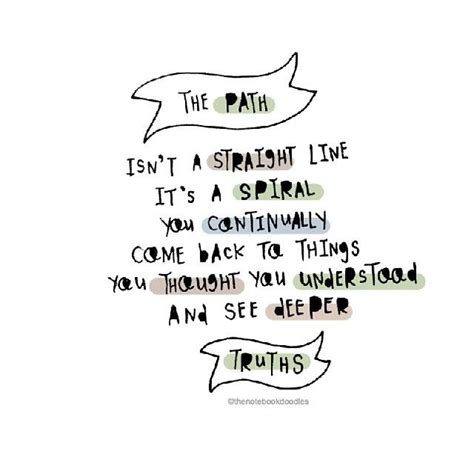 THE PATH
ISN'T A STRAIGHT LINE
IT'S A SPIRAL
YOU CONTINUALLY
COME BACK TO THINGS
YOU THOUGHT YOU UNDERSTOOD
AND SEE DEEPER
TRUTHS
©thenotebookdoodles